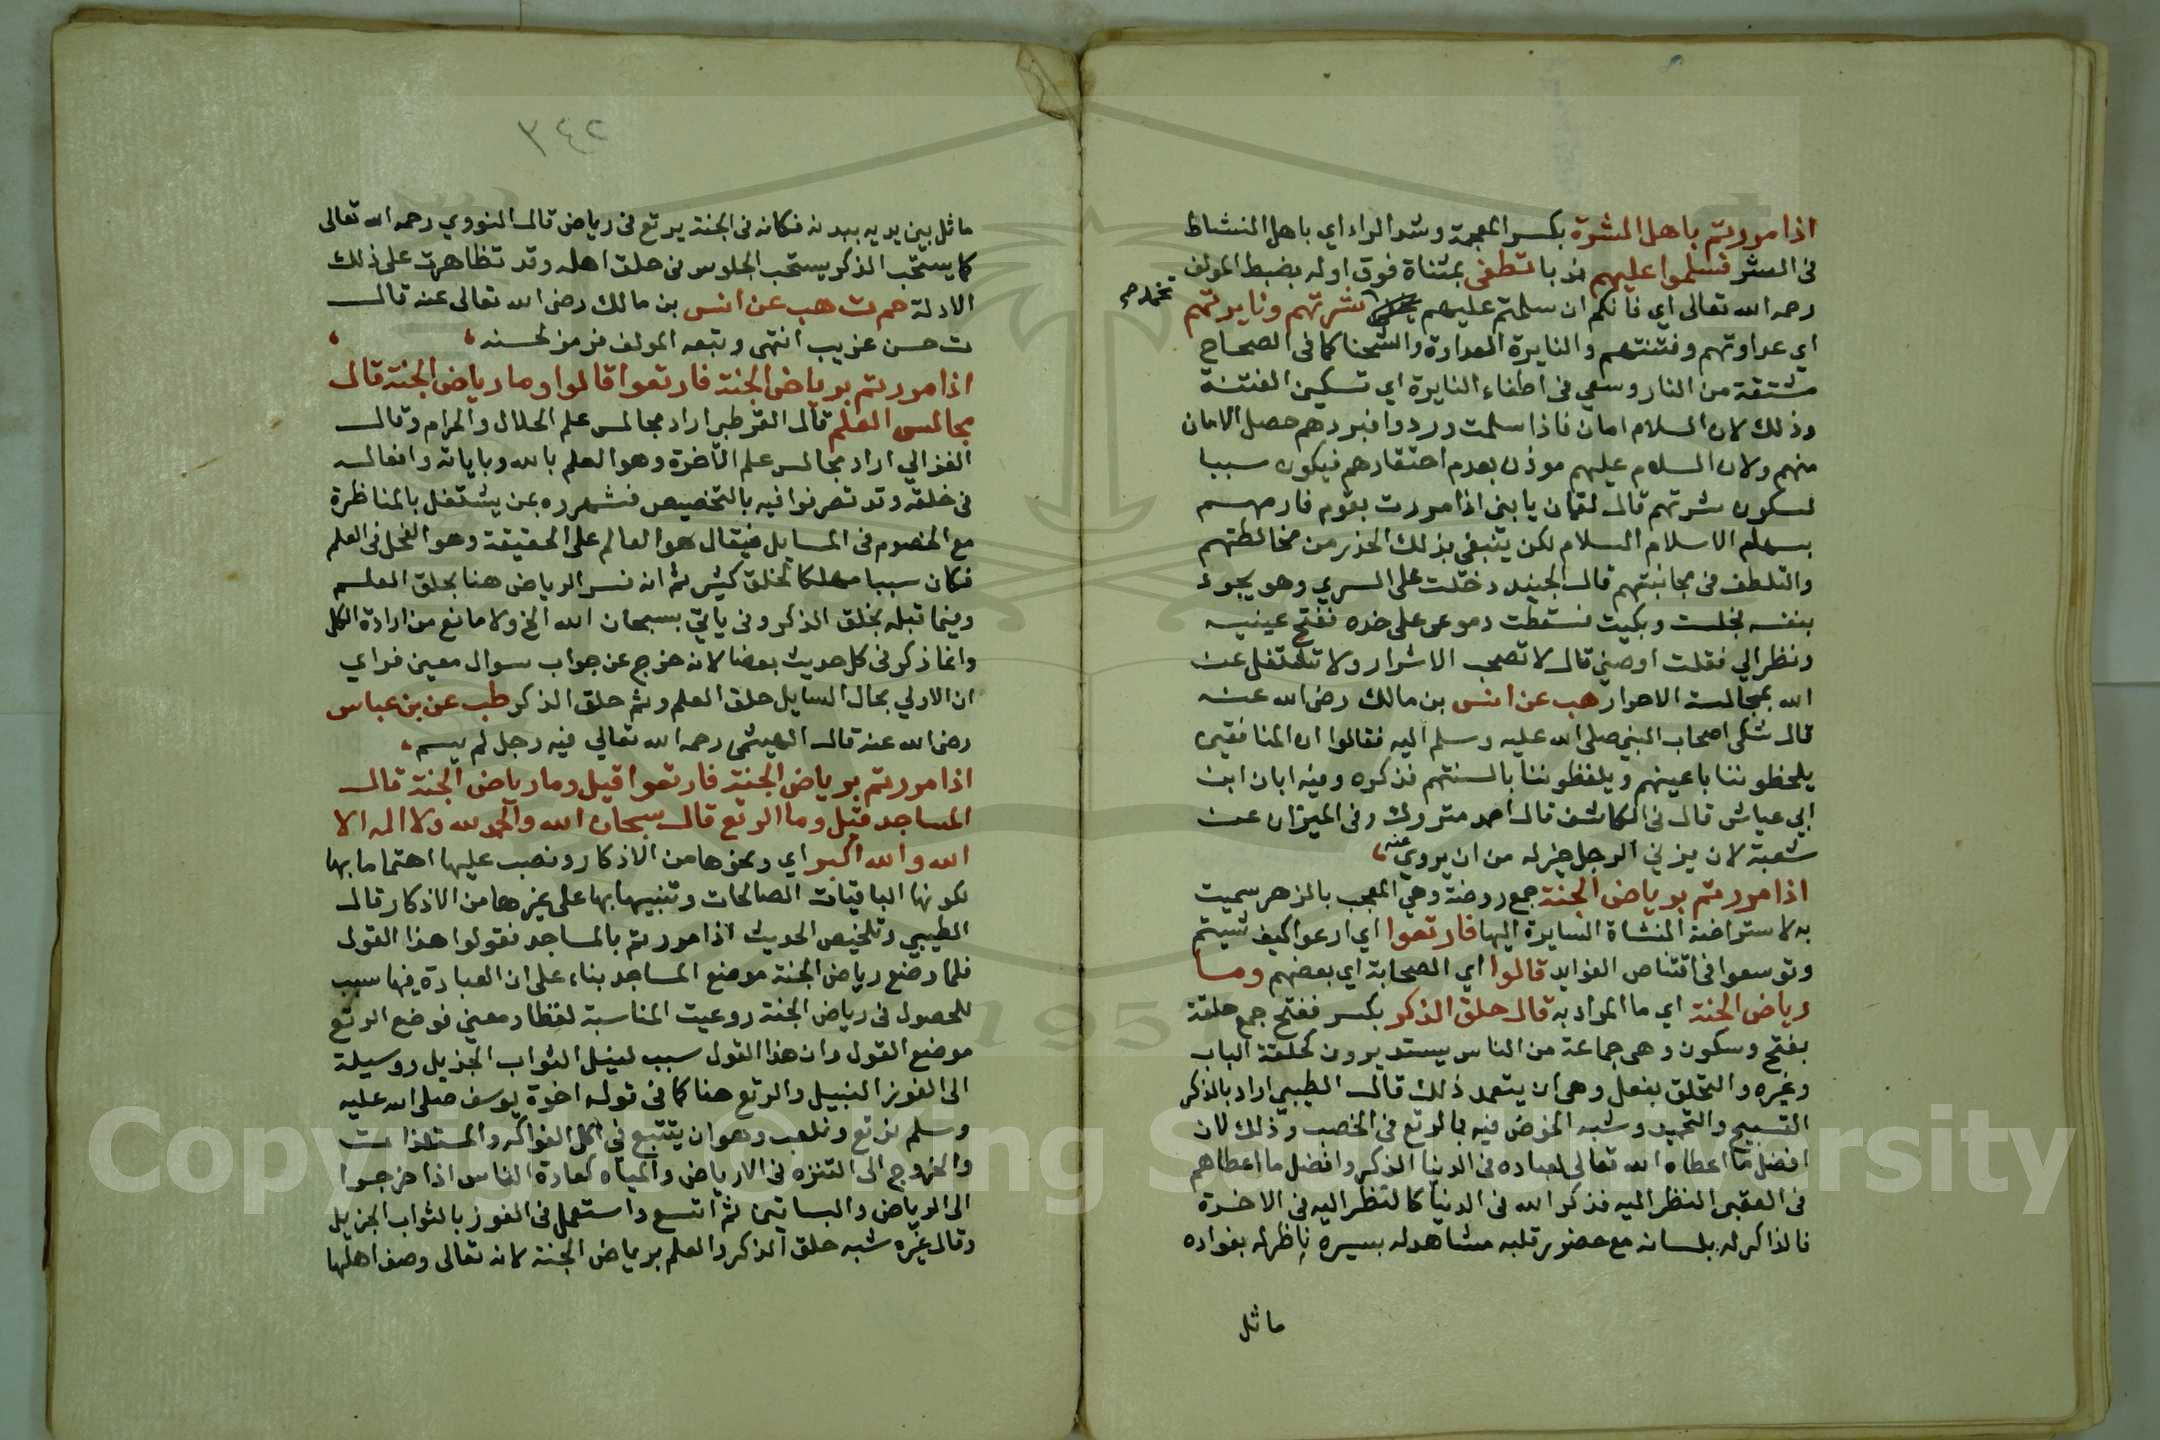 اذا مررتم باهل الشرة بكسر المعجمة وشد الراء اي باهل النشاط
في الشر فسلموا عليهم ندبا تطفى بمثناة فوق اوله بضبط المولف
رحمه الله تعالى اي فانكم ان سلمتم عليهم شرتهم ونايرتهم
تخمد صح
اي عداوتهم وفتنتهم والنايرة العداوة والشحنا كما في الصحاح
مشتقة من النار وسعي في اطفاء النايرة اي تسكين الفتنة
وذلك لان السلام امان فاذا سلمت وردوا فبردهم حصل الامان
منهم ولان السلام عليهم موذن بعدم احتقارهم فيكون سببا
لسكون شرتهم قال لقمان يا بني اذا مررت بقوم فارمهم
بسهام الاسلام السلام لكن ينبغي بذلك الحذر من مخالطتهم
والتلطف في مجانبتهم قال الجنيد دخلت على السري وهو يجود
بنفسه فجلست وبكيت فسقطت دموعي على خده ففتح عينيه
ونظر الي فقلت اوصني قال لا تصحب الاشرار ولا تشتغل عن
الله بمجالسة الاحرار هب عن انس بن مالك رضي الله عنه
قال شكى اصحاب النبي صلى الله عليه وسلم اليه فقالوا ان المنافقين
يلحظوننا باعينهم ويلفظوننا بالسنتهم فذكره وفيه ابان ابن
ابي عياش قال في الكاشف قال احمد متروك وفي الميزان عن
شعبة لان يزني الرجل خير له من ان يروي عنه
اذا مررتم برياض الجنة جمع روضة وهي المعجب بالزهر سميت
به لاستراضة المنشاة السايرة اليها فارتعوا اي ارعوا كيف شيتم
وتوسعوا في اقتناص الفوايد قالوا اي الصحابة اي بعضهم وما
رياض الجنة اي ما المراد به قال حلق الذكر بكسر ففتح جمع حلقة
بفتح وسكون وهي جماعة من الناس يستديرون كحلقة الباب
وغيره والتحلق بفعل وهي ان يتعمد ذلك قال الطيبي اراد بالذكر
التسبيح والتحميد وشبه الخوض فيه بالرتع في الخصب وذلك لان
افضل ما اعطاه الله تعالى لعباده في الدنيا الذكر وافضل ما اعطاهم
في العقبى النظر اليه فذكر الله في الدنيا كالنظر اليه في الاخرة
فالذاكر له بلسانه مع حضور قلبه مشاهد له بسيره ناظر له بفواده
ماثل
٣٤٢
ماثل بين يديه ببدنه فكانه في الجنة يرتع في رياض قال النووي رحمه الله تعالى
كما يستحب الذكر يستحب الجلوس في حلق اهله وقد تظاهرت على ذلك
الادلة حم ت هب عن انس بن مالك رضي الله تعالى عنه قال
ت حسن غريب انتهى وتبعه المولف فرمز لحسنه
اذا مررتم برياض الجنة فارتعوا قالوا وما رياض الجنة قال
مجالس العلم قال القرطبي اراد مجالس علم الحلال والحرام وقال
الغزالي اراد مجالس علم الآخرة وهو العلم بالله وباياته وافعاله
في خلقه وقد تصرفوا فيه بالتخصيص فشهروه بمن يشتغل بالمناظرة
مع الخصوم في المسايل فيقال هو العالم على الحقيقة وهو الفحل في العلم
فكان سببا مهلكا لخلق كثير ثم انه فسر الرياض هنا بحلق العلم
وفيما قبله بحلق الذكر وفي ياتي بسبحان الله الخ ولا مانع من ارادة الكل
وانما ذكر في كل حديث بعضا لانه خرج عن جواب سوال معين فراي
ان الاولي بحال السايل حلق العلم وثم حلق الذكر طب عن بن عباس
رضي الله عنه قال الهيثمي رحمه الله تعالي فيه رجل لم يسم
اذا مررتم برياض الجنة فارتعوا قيل وما رياض الجنة قال
المساجد قيل وما الرتع قال سبحان الله والحمد لله ولا اله الا
الله والله اكبر اي ونحوها من الاذكار ونصب عليها اهتماما بها
لكونها الباقيات الصالحات وتنبيها بها على غيرها من الاذكار قال
الطيبي وتلخيص الحديث اذا مررتم بالمساجد فقولوا هذا القول
فلما وضع رياض الجنة موضع المساجد بناء على ان العبادة فيها سبب
للحصول في رياض الجنة روعيت المناسبة لفظا ومعنى فوضع الرتع
موضع القول وان هذا القول سبب لنيل الثواب الجزيل ووسيلة
الى الفوز النبيل والرتع هنا كما في قوله اخوة يوسف صلى الله عليه
وسلم نرتع ونلعب وهو ان يتتبع في اكل الفواكه والمستلذات
والخروج الى التنزه في الارياض والمياه كعادة الناس اذا خرجوا
الى الرياض والبساتين ثم اتسع واستعمل في الفوز بالثواب الجزيل
وقال غيره شبه حلق الذكر والعلم برياض الجنة لانه تعالى وصف اهلها
Copyright © King Saud University